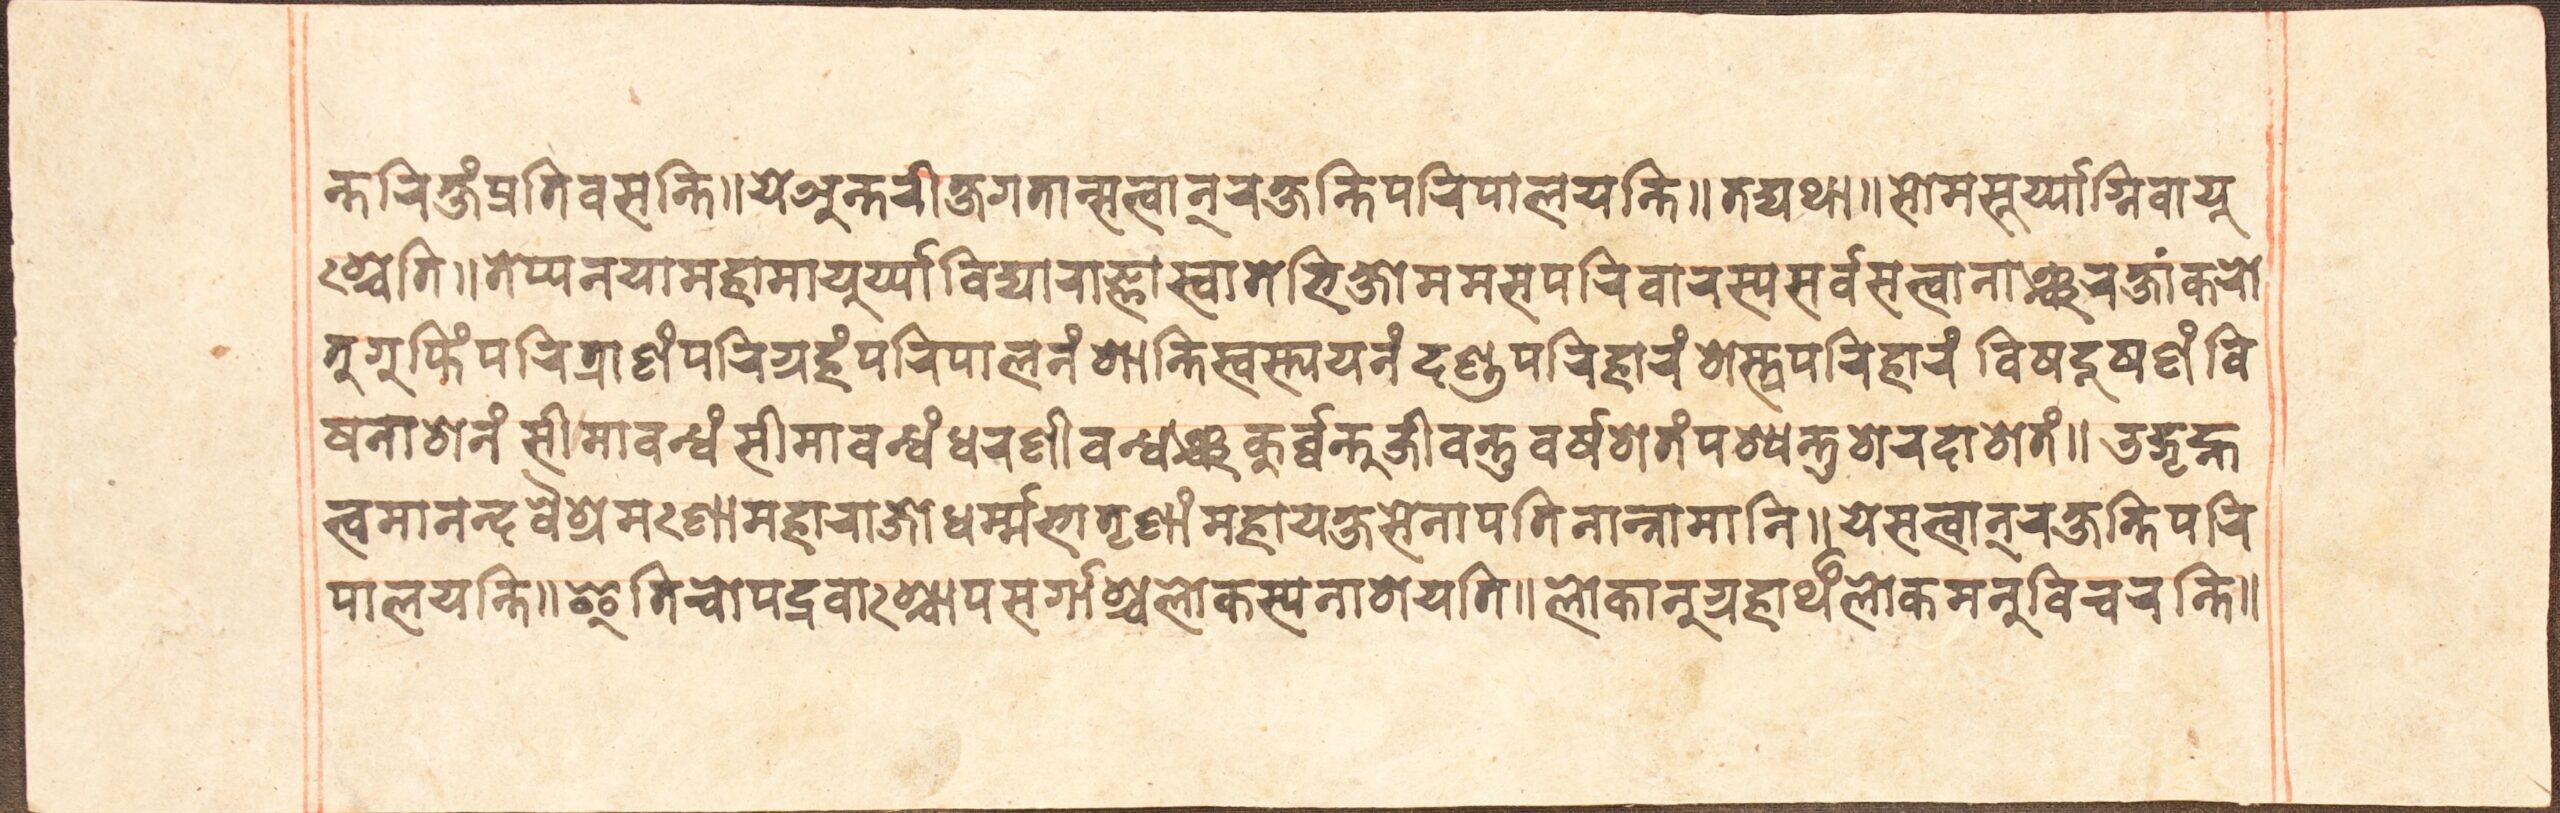 न्तरिक्षंप्रतिवसन्ति॥येअन्तरीक्षगतान्सत्वान्रक्षन्तिपरिपालयन्ति॥तद्यथा॥सोमसूर्य्याग्निवायु
श्चेति॥तेप्यनयामहामायुर्य्याविद्याराज्ञास्वातेर्भिक्षोममसपरिवारस्यसर्वसत्वानाञ्चरक्षांकरो
तुगुप्तिंपरित्राणंपरिग्रहंपरिपालनंशान्तिस्वस्त्ययनंदण्डपरिहारंशस्त्रपरिहारं विषदूषणंवि
षनाशनं सीमावन्धंसीमावन्धंधरणीवन्धञ्चकुर्व्वन्तुजीवन्तुवर्षशतंपश्यन्तुशरदाशतं॥ उद्गृह्ण
त्वमानन्द वैश्रमणामहाराजोधर्म्मभातृणांमहायक्षसेनापतिनान्नामानि॥येसत्वान्रक्षन्तिपरि
पालयन्ति॥ इतिचोपद्रवाश्चोपसर्गाश्चलोकस्यनाशयति॥लोकानुग्रहार्थंलोकमनुविचरन्ति॥